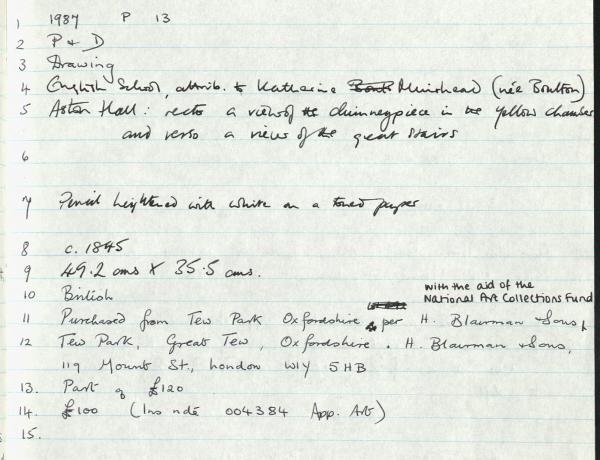 1 1987 P 13
2 P & D
3 Drawing
4 English School, attrib. to Katharine Muirhead (née Boulton)
5 Aston Hall: recto a view of the chimneypiece in the Yellow chamber
and verso a view of the great stairs
6
7 Pencil heightened with white on a toned paper
8 c. 1845
9 49.2 cms X 35.5 cms.
10 British
with the aid of the
National Art Collections Fund
11 Purchased from Tew Park Oxfordshire per H. Blairman & Sons,
12 Tew Park, Great Tew, Oxfordshire. H. Blairman & Sons,
119 Mount St., London W1Y 5HB
13. Part of £120
14. £100 (Ins note 004384 App. Art)
15.